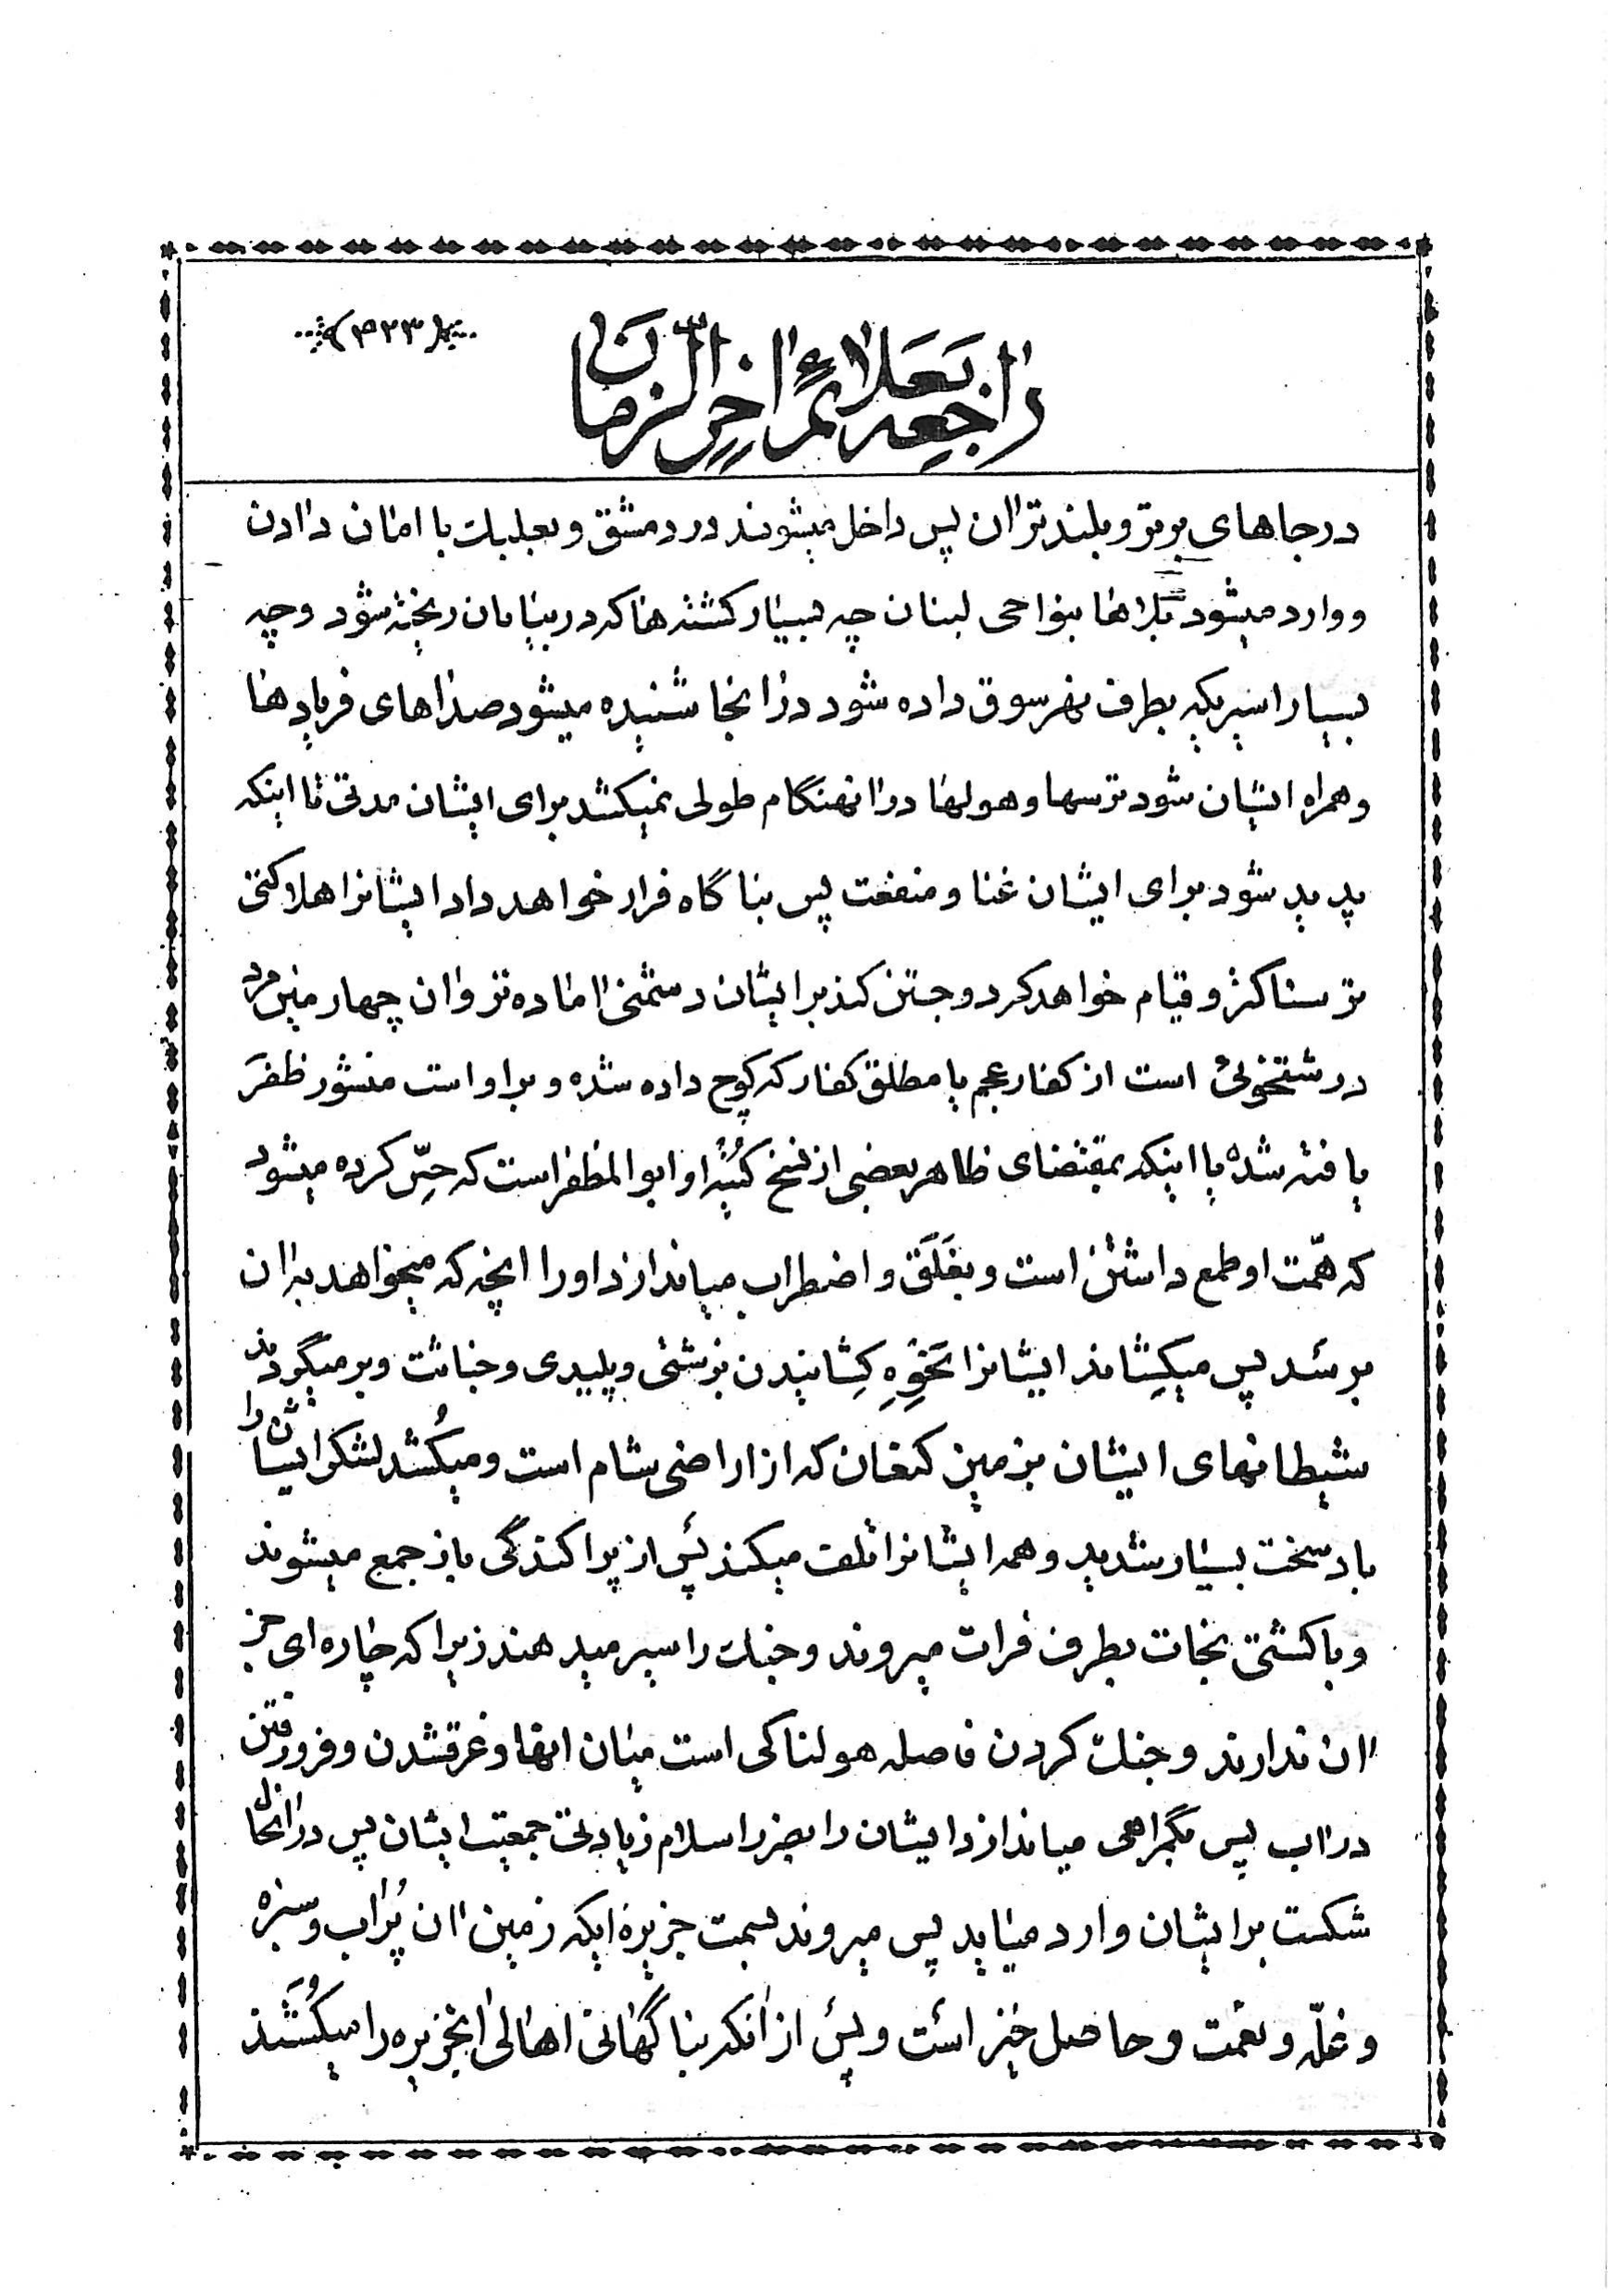 ﴿۴۲۳﴾
راجعه بعلائم آخر الزمان
در جاهای برتر و بلندتر ان پس داخل میشوند در دمشق و بعلبک با امان دادن
و وارد میشود بلاها بنواحی لبنان چه بسیار کشته ها که در بیابان ریخته شود و چه
بسیار اسیریکه بطرف نهر سوق داده شود در انجا شنیده میشود صداهای فریادها
و همراه ایشان شود ترسها و هولها در انهنگام طولی نمیکشد برای ایشان مدتی تا اینکه
پدید شود برای ایشان غنا و منفعت پس بناگاه فرار خواهد داد ایشانرا هلاکتی
ترسناکتر و قیام خواهد کرد و جستن کند بر ایشان دشمنی اماده تر و ان چهارمین مرد
درشتخوئی است از کفار عجم یا مطلق کفار که کوچ داده شده و بر او است منشور ظفر
یافته شده یا اینکه بمقتضای ظاهر بعضی از نسخ کنیه او ابو المظفر است که حس کرده میشود
که همت او طمع داشتن است و بغلق و اضطراب میاندازد او را انچه که میخواهد به ان
برسد پس میکشاند ایشانرا نحوه کشانیدن بزشتی و پلیدی و خباثت و برمیگردند
شیطانهای ایشان بزمین کنعان که از اراضی شام است و میکشد لشکر ایشان را
باد سخت بسیار شدید و همه ایشانرا تلف میکند پس از پراکندگی باز جمع میشوند
و با کشتی نجات بطرف فرات میروند و جنک را سپر میدهند زیرا که چاره ای جز
ان ندارند و جنک کردن فاصله هولناکی است میان انها و غرقشدن و فرورفتن
در اب پس بگمراهی میاندازد ایشان را بضرر اسلام زیادتی جمعیت ایشان پس در انجا
شکست بر ایشان وارد میاید پس میروند بسمت جزیرۀ ایکه زمین ان پر اب و سبزه
و غله و نعمت و حاصل خیز است و پس از انکه بناگهانی اهالی انجزیره را میکشند